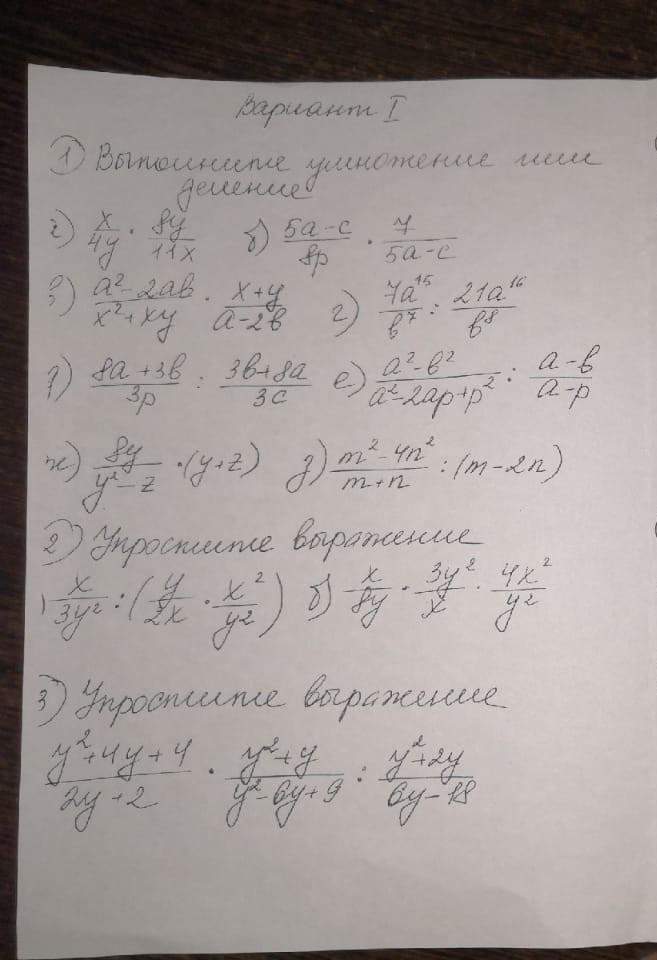 Вариант I
1) Выполните умножение или
деление
а) x/4y · 8y/11x б) 5a-c/8p · 7/5a-c
в) a²-2ab/x²+xy · x+y/a-2b г) 7a¹⁵/b⁷ : 21a¹⁶/b⁸
д) 8a+3b/3p : 3b+8a/3c е) a²-b²/a²-2ap+p² : a-b/a-p
ж) 8y/y²-z · (y+z) з) m²-4n²/m+n : (m-2n)
2) Упростите выражение
) x/3y² : (y/2x · x²/y²) б) x/8y · 3y²/x · 4x²/y²
3) Упростите выражение
y²+4y+4/2y+2 · y²+y/y²-6y+9 : y²+2y/6y-18